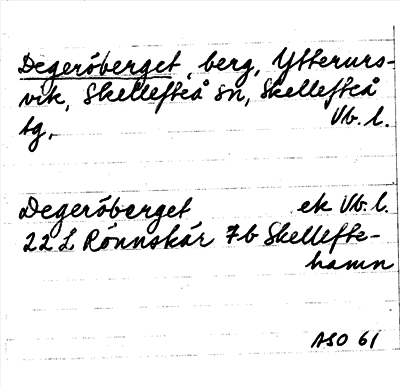 Degeröberget, berg, Ytterurs-
vik, Skellefteå sn, Skellefteå
tg, Vb. l.
Degeröberget ek Vb. l.
22 L Rönnskär 7b Skellefte-
hamn
ASO 61